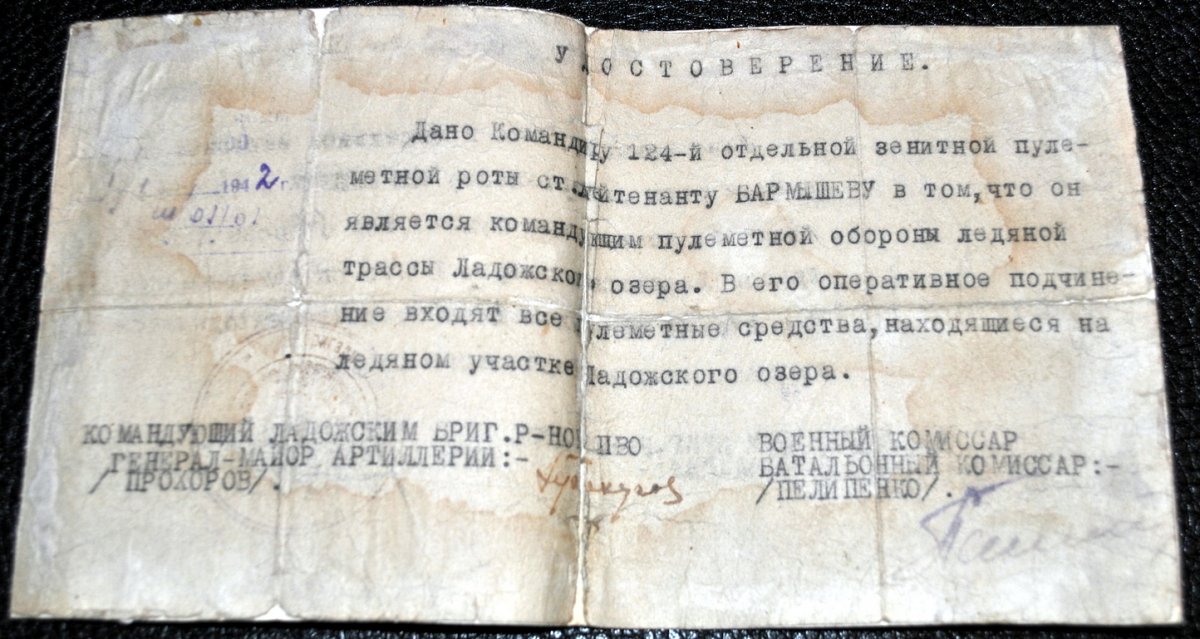 УДОСТОВЕРЕНИЕ.
Дано Командиру 124-й отдельной зенитной пуле-
1942 г.
метной роты ст.лейтенанту БАРМЫШЕВУ в том,что он
является командующим пулеметной обороны ледяной
трассы Ладожского озера. В его оперативное подчине-
ние входят все пулеметные средства,находящиеся на
ледяном участке Ладожского озера.
КОМАНДУЮЩИЙ ЛАДОЖСКИМ БРИГ.Р-НОМ ПВО
ГЕНЕРАЛ-МАЙОР АРТИЛЛЕРИИ:-
/ ПРОХОРОВ/.
ВОЕННЫЙ КОМИССАР
БАТАЛЬОННЫЙ КОМИССАР:-
/ПЕЛИПЕНКО/.